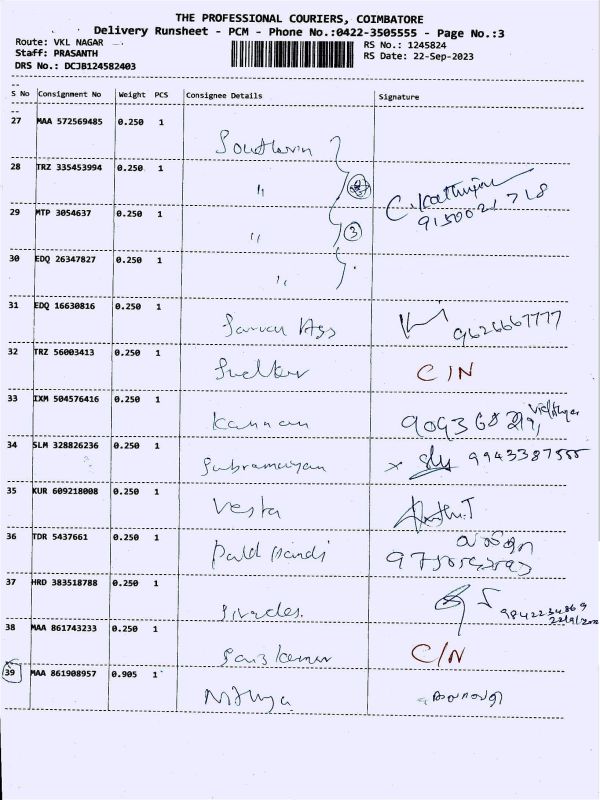 THE PROFESSIONAL COURIERS, COIMBATORE
Delivery Runsheet - PCM - Phone No.:0422-3505555 - Page No.:3
Route: VKL NAGAR
Staff: PRASANTH
DRS No.: DCJB124582403
RS No.: 1245824
RS Date: 22-Sep-2023
S No Consignment No Weight PCS Consignee Details Signature
27 MAA 572569485 0.250 1
Southern
28 TRZ 335453994 0.250 1
"
9150021718
29 MTP 3054637 0.250 1
" 3
30 EDQ 26347827 0.250 1
"
31 EDQ 16630816 0.250 1
9626667777
32 TRZ 56003413 0.250 1
C/N
33 IXM 504576416 0.250 1
Kannan
34 SLM 328826236 0.250 1
Subramaiyan x 9943387555
35 KUR 609218008 0.250 1
Vesta
36 TDR 5437661 0.250 1
37 HRD 383518788 0.250 1
9842234869
38 MAA 861743233 0.250 1
C/N
39 MAA 861908957 0.905 1
Nithya